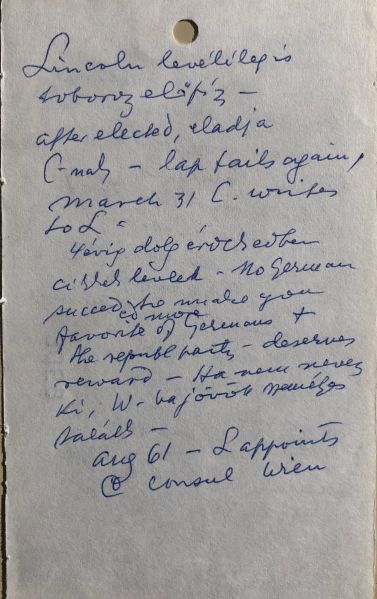 Lincoln levélileg is
toboroz előfiz –
after elected, eladja
C-nak – lap fails again,
March 31 C. writes
to L "
4 évig dolg érdekedben
cikkek levelek – No German
succeeded to make you
so more
favorite of Germans +
the republ party – deserves
reward – Ha nem nevez
ki, W- ba jövök
találk –
Aug 61 – L appoints
C consul Wien